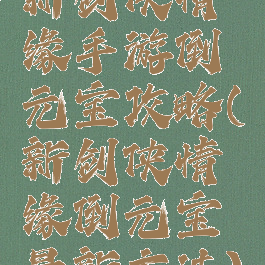 新创侠情
缘手游倒
元宝攻略(
新创侠情
缘倒元宝
最新方法)